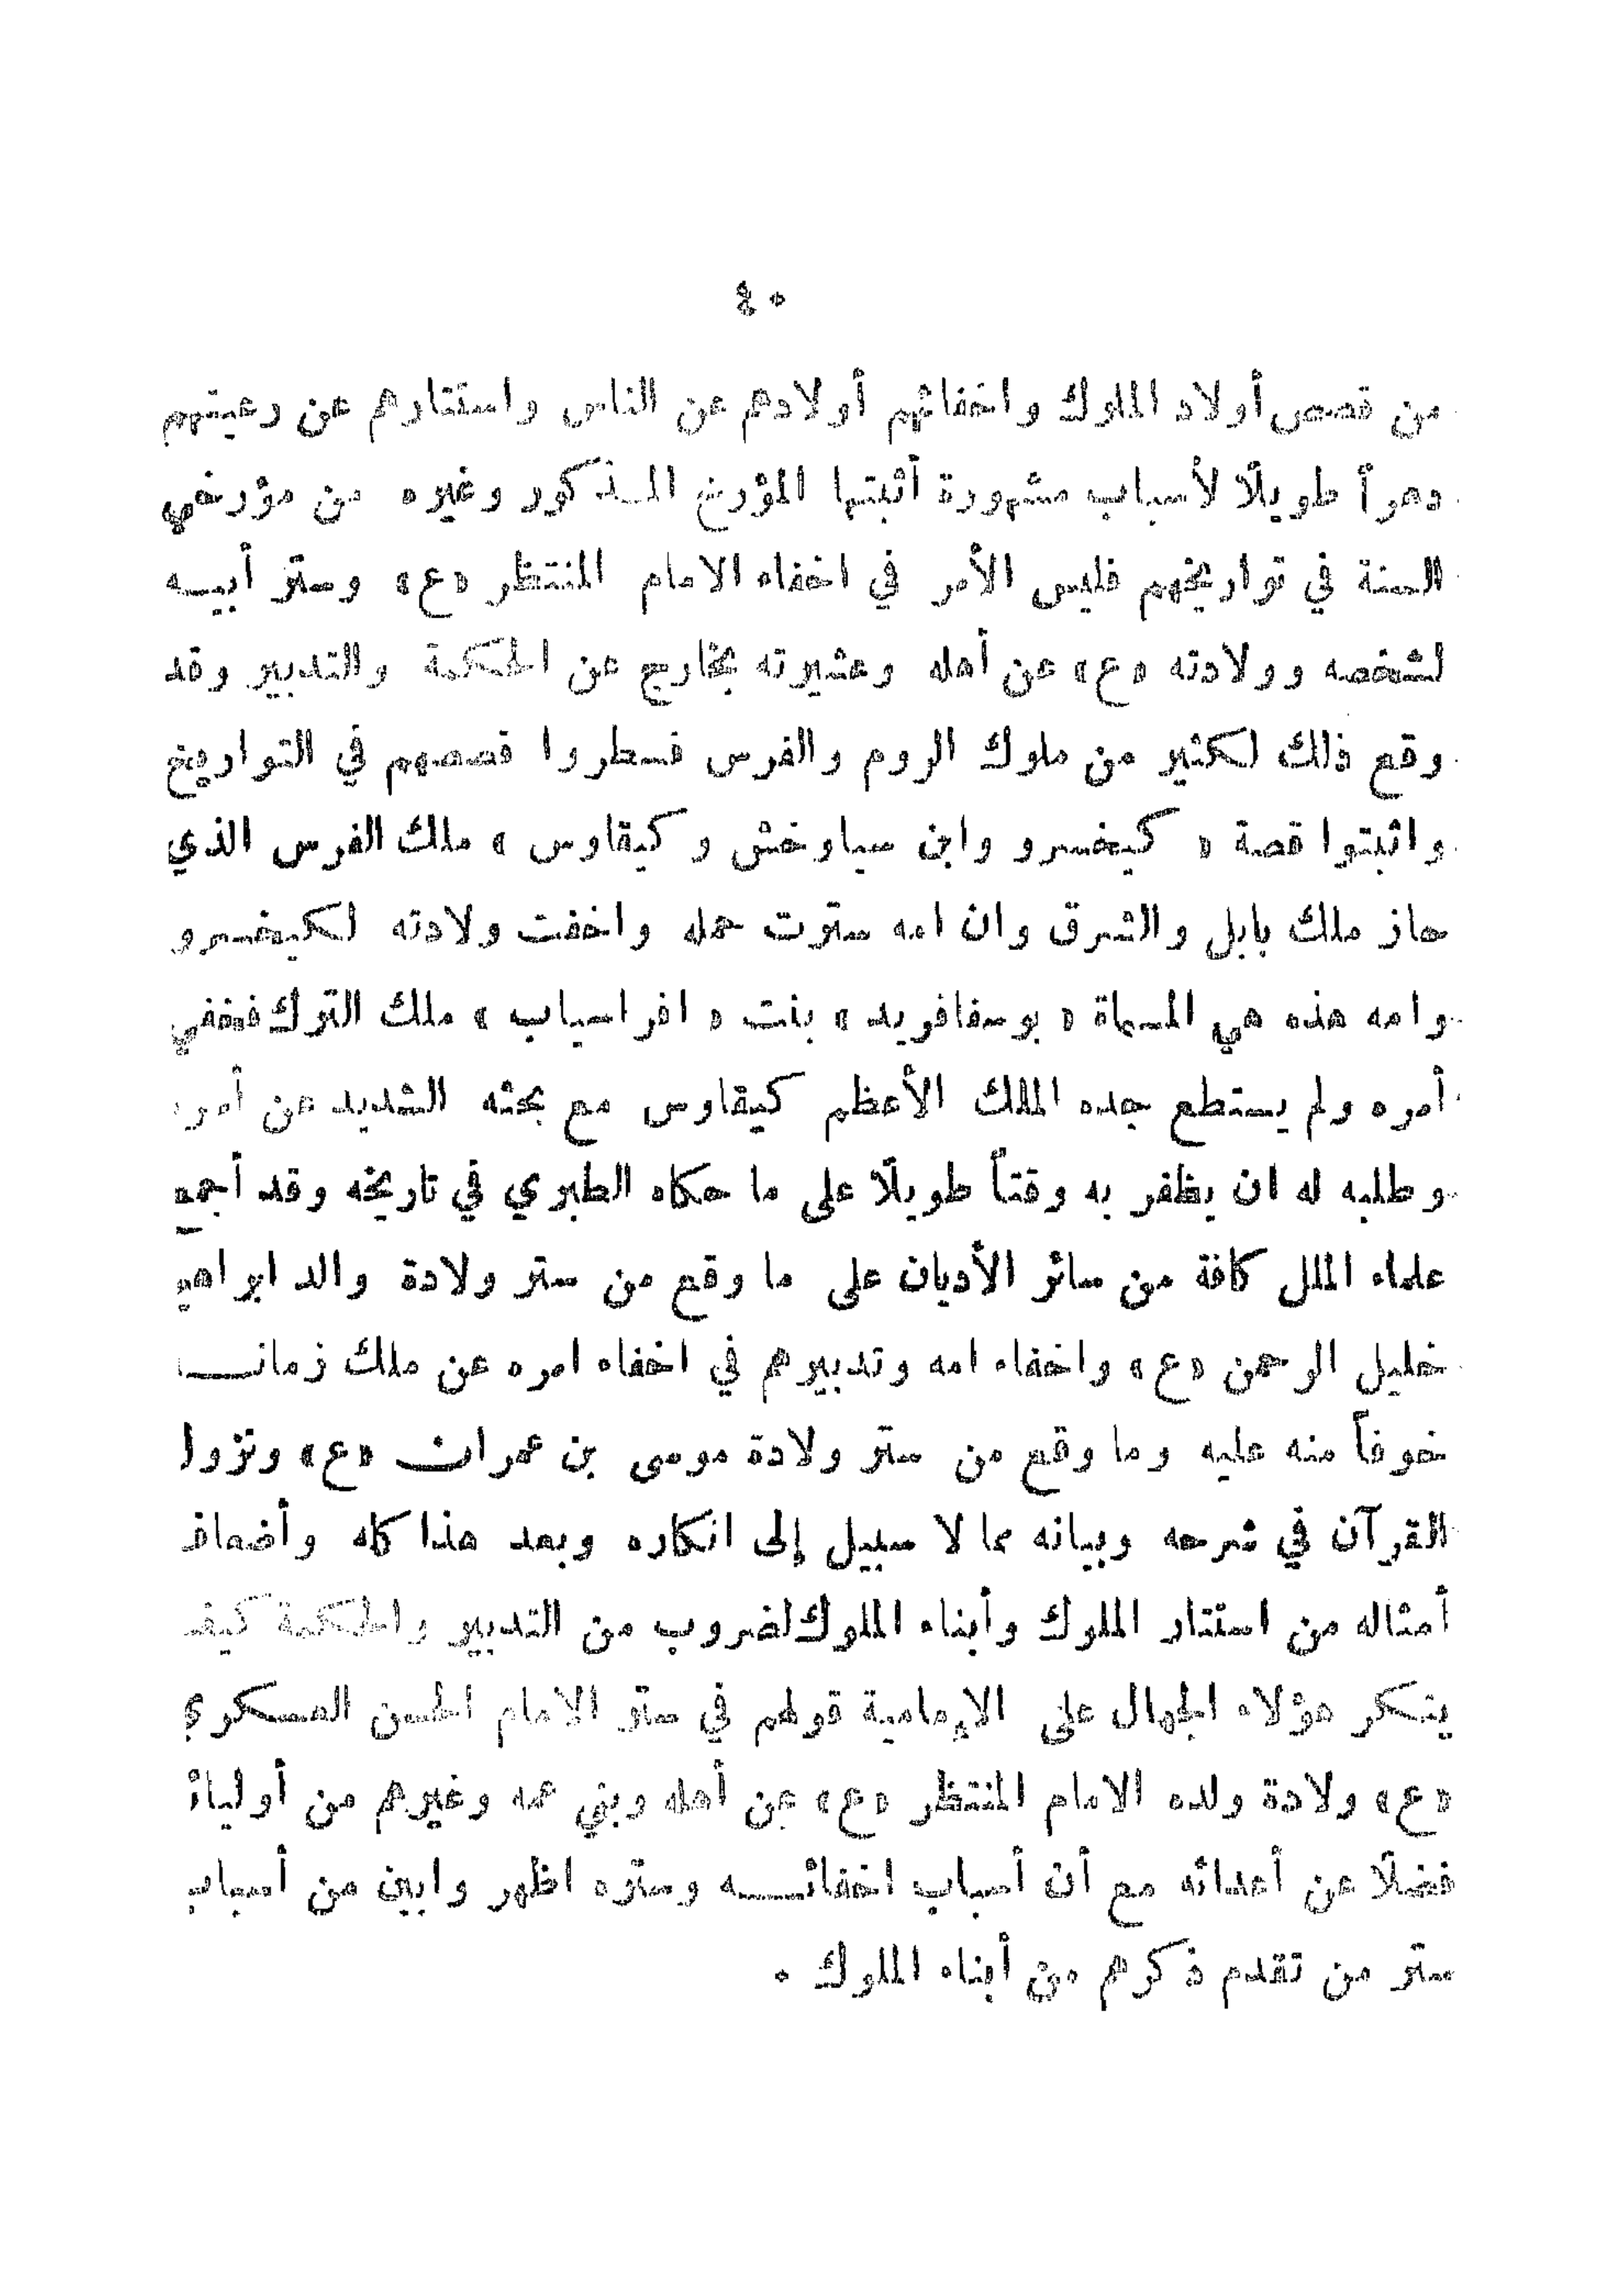 ٤٠
من قصص أولاد الملوك واخفائهم أولادهم عن الناس واستتارهم عن رعيتهم
دهراً طويلًا لأسباب مشهورة أثبتها المؤرخ المـذكور وغيره من مؤرخي
السنة في تواريخهم فليس الأمر في اخفاء الامام المنتظر «ع» وستر أبيـه
لشخصه وولادته «ع» عن أهله وعشيرته بخارج عن الحكمة والتدبير وقد
وقع ذلك لكثير من ملوك الروم والفرس فسطروا قصصهم في التواريخ
واثبتوا قصة « كيخسرو وابن سياوخش وكيقاوس » ملك الفرس الذي
حاز ملك بابل والشرق وان امه سترت حمله واخفت ولادته لكيخسرو
وامه هذه هي المسماة « بوسفافريد » بنت « افراسياب » ملك الترك فخفي
أمره ولم يستطع جده الملك الأعظم كيقاوس مع بحثه الشديد عن أمره
وطلبه له ان يظفر به وقتاً طويلًا على ما حكاه الطبري في تاريخه وقد أجمع
علماء الملل كافة من سائر الأديان على ما وقع من ستر ولادة والد ابراهيم
خليل الرحمن «ع» واخفاء امه وتدبيرهم في اخفاء امره عن ملك زمانـــا
خوفاً منه عليه وما وقع من ستر ولادة موسى بن عمران «ع» ونزول
القرآن في شرحه وبيانه بما لا سبيل إلى انكاره وبعد هذا كله وأضعاف
أمثاله من استتار الملوك وأبناء الملوك لضروب من التدبير والحكمة كيف
ينكر هؤلاء الجهال على الإمامية قولهم في ستر الامام الحسن العسكري
«ع» ولادة ولده الامام المنتظر «ع» عن أهله وبني عمه وغيرهم من أوليائه
فضلًا عن أعدائه مع أن أسباب اخفائـــه وستره اظهر وابين من أسباب
ستر من تقدم ذكرهم من أبناء الملوك .